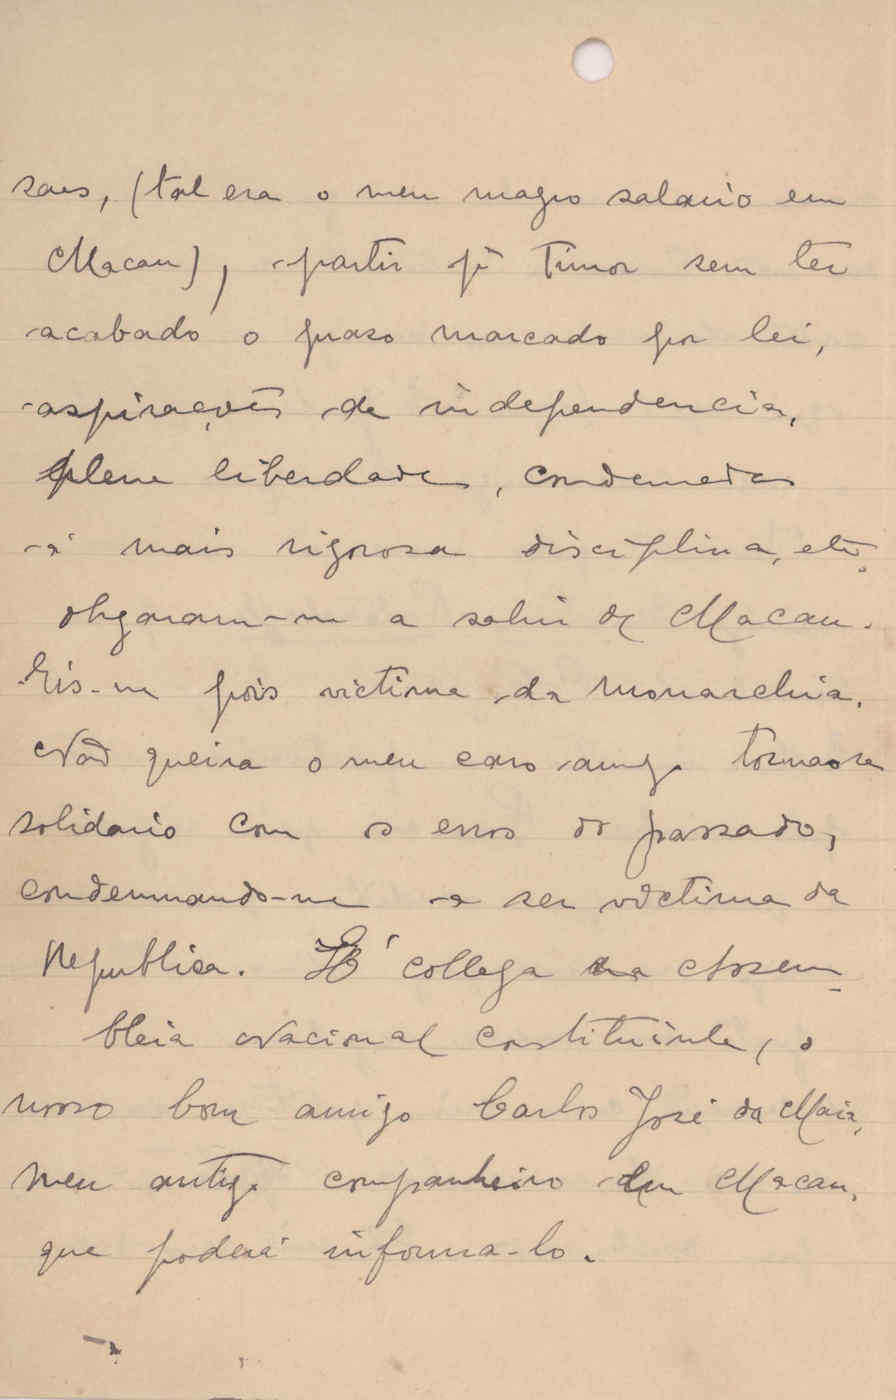 saes, (tal era o meu magro salario em
Macau), partir pª Timor sem ter
acabado o praso marcado por lei,
aspirações de independencia,
plena liberdade, condemnada
á mais rigorosa disciplina, etc.
obrgaram-me a sahir de Macau.
Eis-me pois victima da monarchia.
Não queira o meu caro amigo tornar-se
solidario com os erros do passado,
condemnando-me a ser victima da
Republica. É collega na Assem-
bleia Nacional Constituinte, o
nosso bom amigo Carlos José da Maia,
meu antigo companheiro em Macau,
que poderá informa-lo.